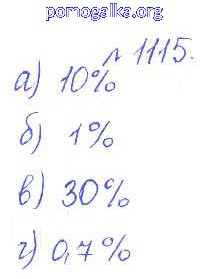 pomogalka.org
№ 1115.
а) 10%
б) 1%
в) 30%
г) 0,7%